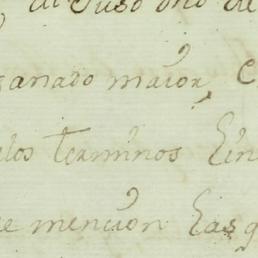 de Suso dho de
ganado maior, C
los terminos Ein
e mencion Las q